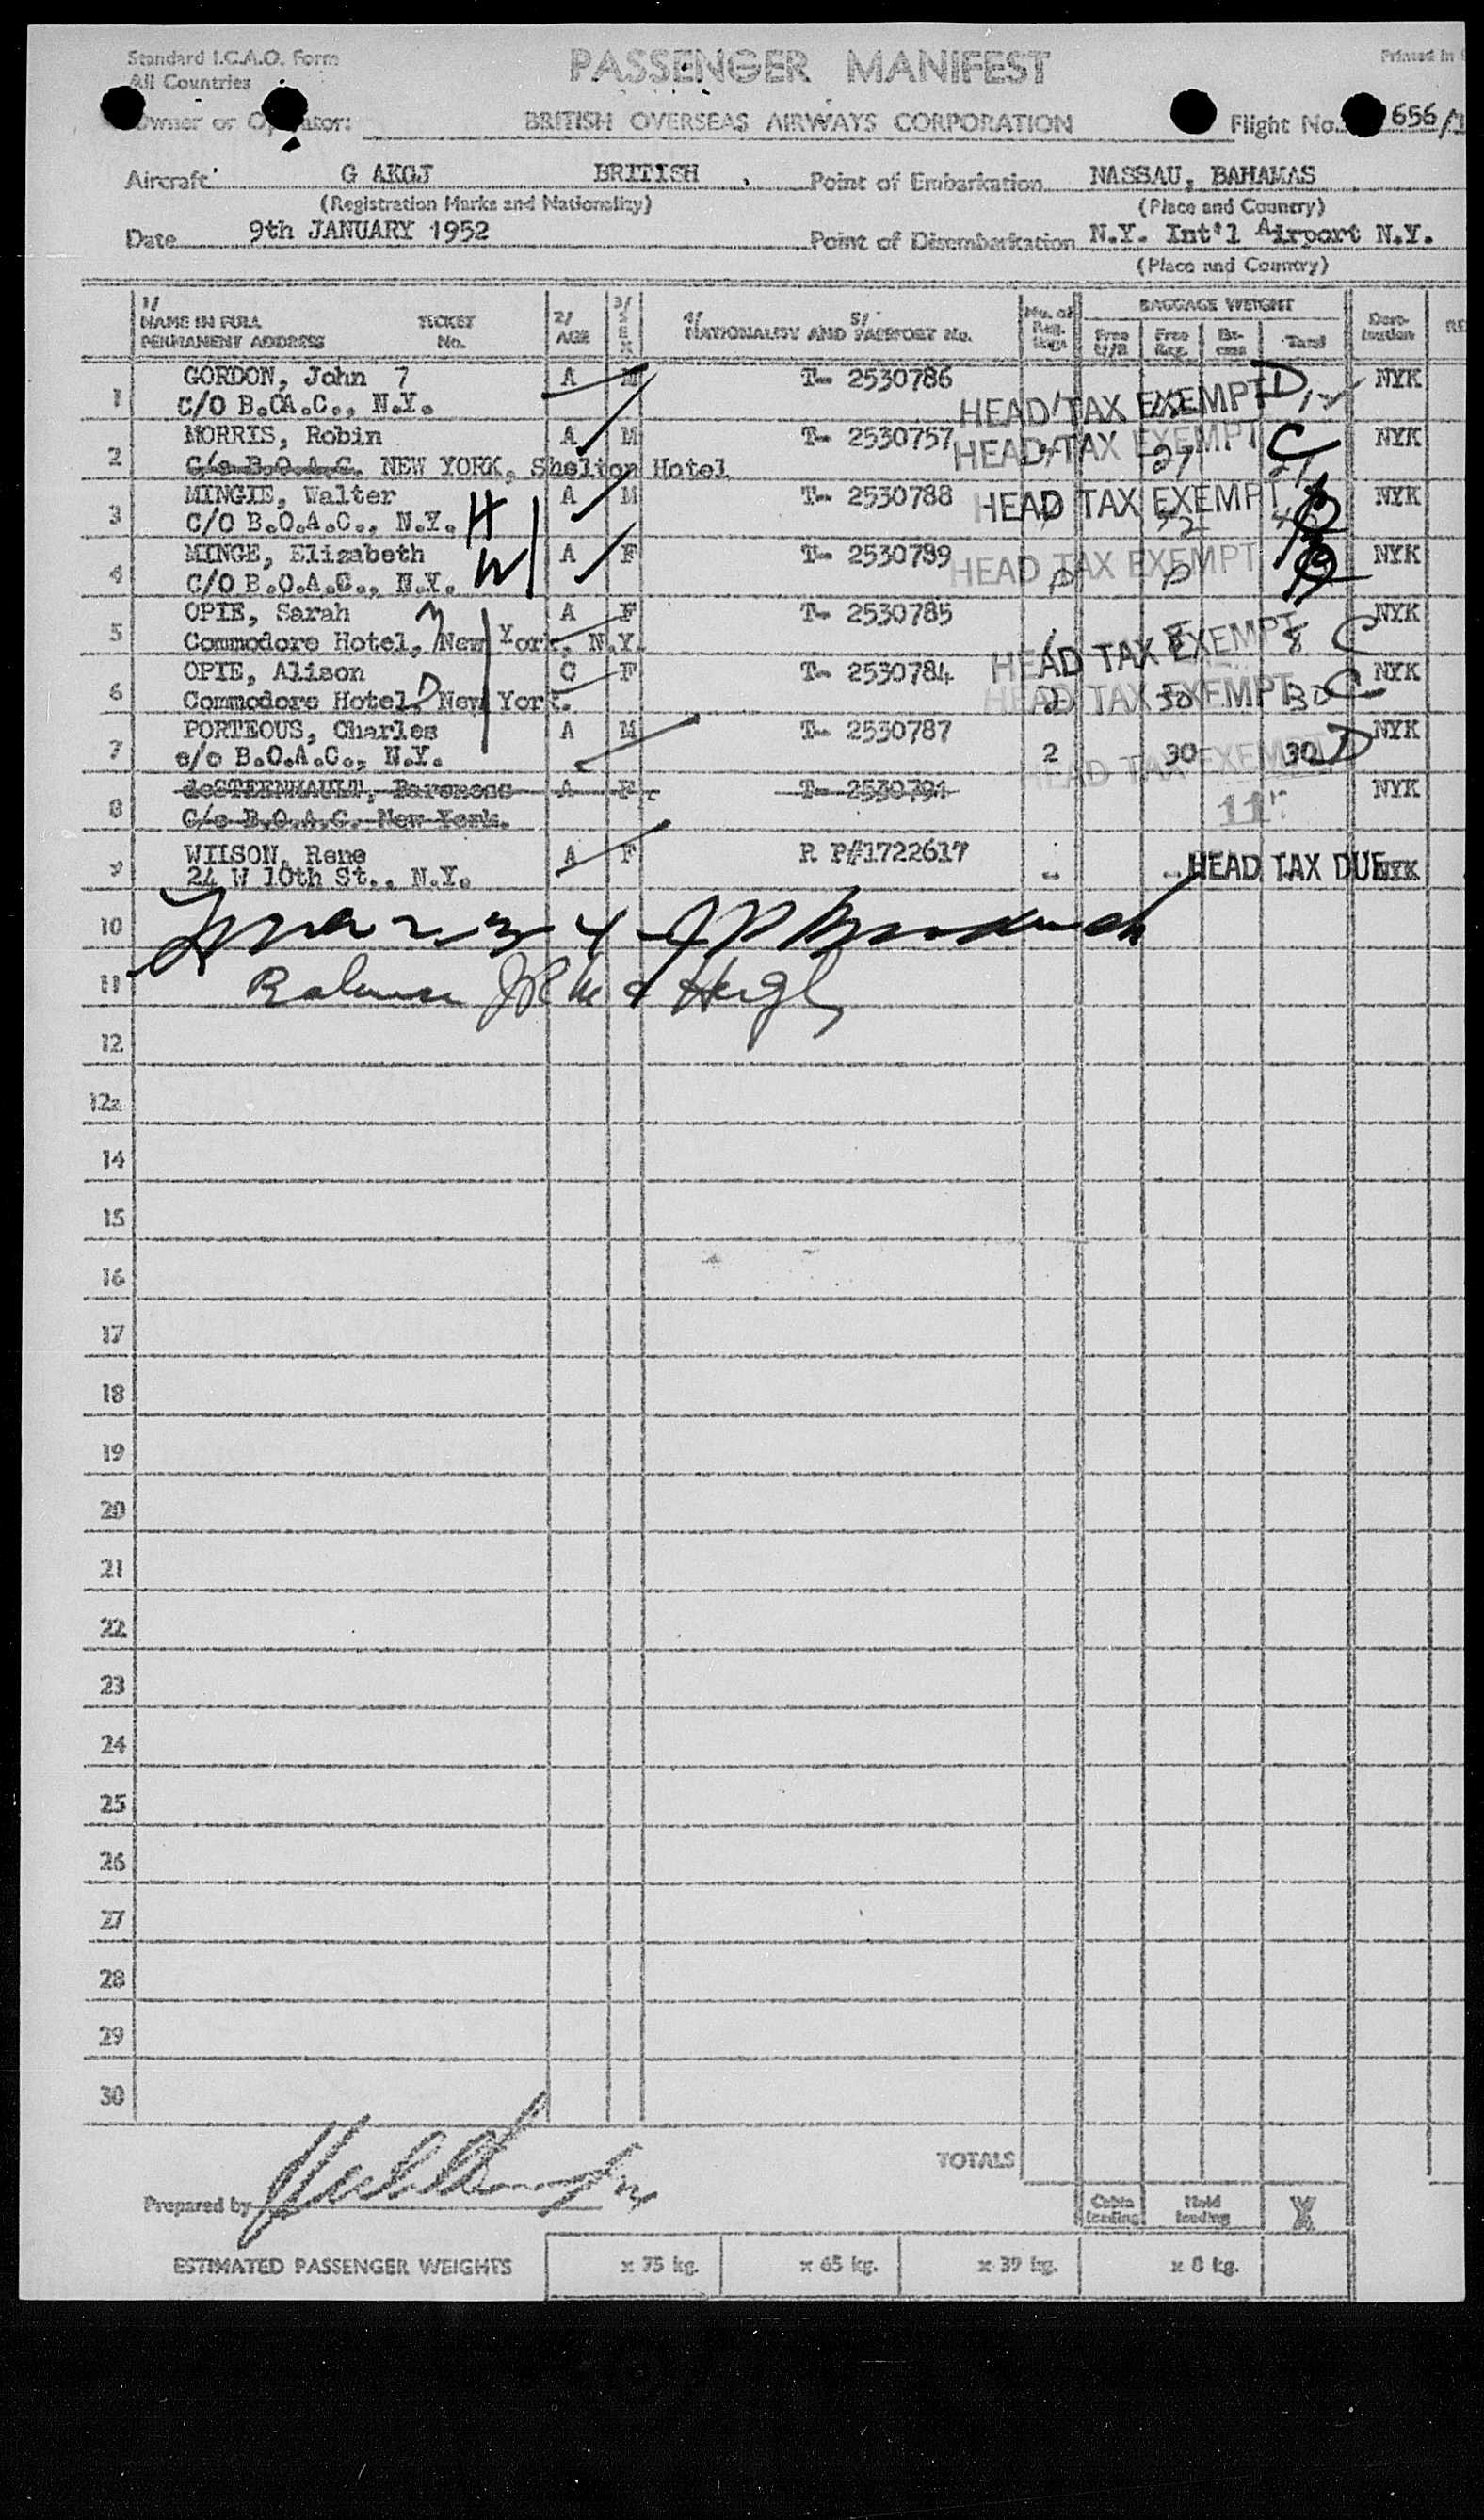 Standard I.C.A.O. Form
All Countries
PASSENGER MANIFEST
Printed in
Owner or Operator: BRITISH OVERSEAS AIRWAYS CORPORATION Flight No. 656/
Aircraft G AKGJ BRITISH Point of Embarkation NASSAU, BAHAMAS
(Registration Marks and Nationality) (Place and Country)
Date 9th JANUARY 1952 Point of Disembarkation N.Y. Int'l Airport N.Y.
(Place and Country)
1/ NAME IN FULL PERMANENT ADDRESS TICKET No. 2/ AGE 3/ SEX 4/ NATIONALITY AND 5/ PASSPORT No. No. of Reg. Bags BAGGAGE WEIGHT Free U/R Free Reg. Ex-cess Total Dest-ination RE
1 GORDON, John 7 A M T- 2530786 HEAD TAX EXEMPT D NYK
C/O B.OA.C., N.Y.
2 MORRIS, Robin A M T- 2530757 HEAD TAX EXEMPT 27 C NYK
C/o B.O.A.C. NEW YORK, Shelton Hotel
3 MINGIE, Walter A M T- 2530788 HEAD TAX EXEMPT NYK
C/O B.O.A.C., N.Y. H
4 MINGE, Elizabeth A F T- 2530789 HEAD TAX EXEMPT NYK
C/O B.O.A.C., N.Y. W
5 OPIE, Sarah M A F T- 2530785 HEAD TAX EXEMPT 8 C NYK
Commodore Hotel, New York, N.Y.
6 OPIE, Alison C F T- 2530784 HEAD TAX EXEMPT 2 30 30 C NYK
Commodore Hotel, D New York.
7 PORTEOUS, Charles A M T- 2530787 HEAD TAX EXEMPT 2 30 30 D NYK
c/o B.O.A.C., N.Y.
8 deSTEENHAULT, Baroness A F T- 2530791 NYK
C/o B.O.A.C. New York. 117
9 WILSON, Rene A F R P#1722617 -- -- HEAD TAX DUE NYK
24 W 10th St., N.Y.
10
11
12
12a
14
15
16
17
18
19
20
21
22
23
24
25
26
27
28
29
30
TOTALS
Prepared by
Cabin loading Hold loading
ESTIMATED PASSENGER WEIGHTS x 75 kg. x 65 kg. x 39 kg. x 8 kg.